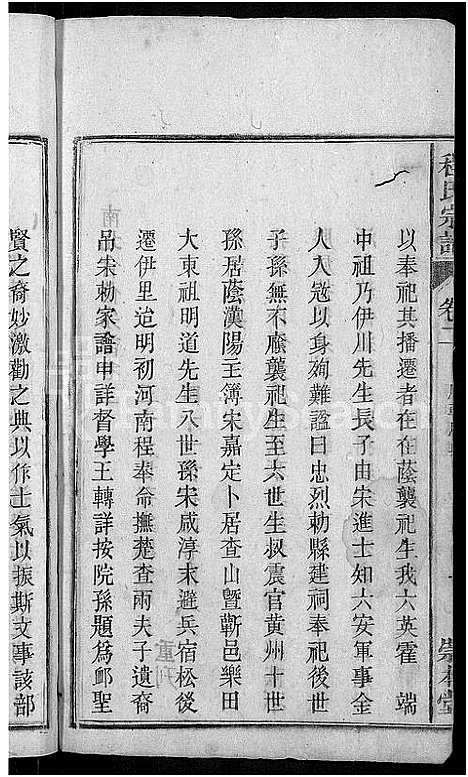 程氏宗譜
卷二
崇本堂
以奉祀其播遷者在在蔭襲祀生我六英霍 端
中祖乃伊川先生長子由宋進士知六安軍事金
人入寇以身殉難謚曰忠烈勅縣建祠奉祀後世
子孫無不廕襲祀生至六世生叔震官黃州十世
孫居蔭漢陽王簿宋嘉定卜居查山暨蘄邑樂田
大東祖明道先生八世孫宋咸淳末避兵宿松後
遷伊里迨明初河南程奉命撫楚查兩夫子遺裔
吊宋勅家譜申詳督學王轉詳按院孫題為郎聖
賢之裔妙激勸之典以作士氣以振斯文事該部
重刊